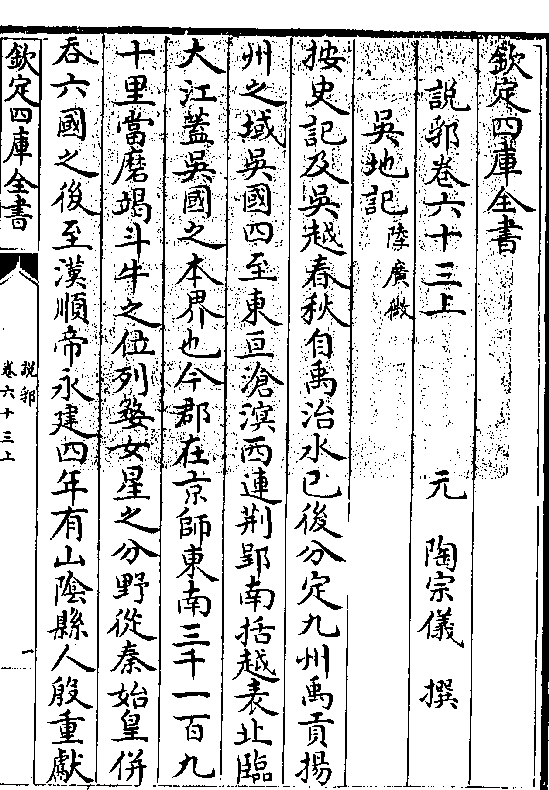 欽定四庫全書
說郛卷六十三上 元 陶宗儀 撰
吳地記 陸廣微
按史記及吳越春秋自禹治水已後分定九州禹貢揚
州之域吳國四至東亘滄溟西連荆郢南括越表北臨
大江蓋吳國之本界也今郡在京師東南三千一百九
十里當磨竭斗牛之位列婺女星之分野從秦始皇併
吞六國之後至漢順帝永建四年有山陰縣人殷重獻
欽定四庫全書
說郛
卷六十三上
一